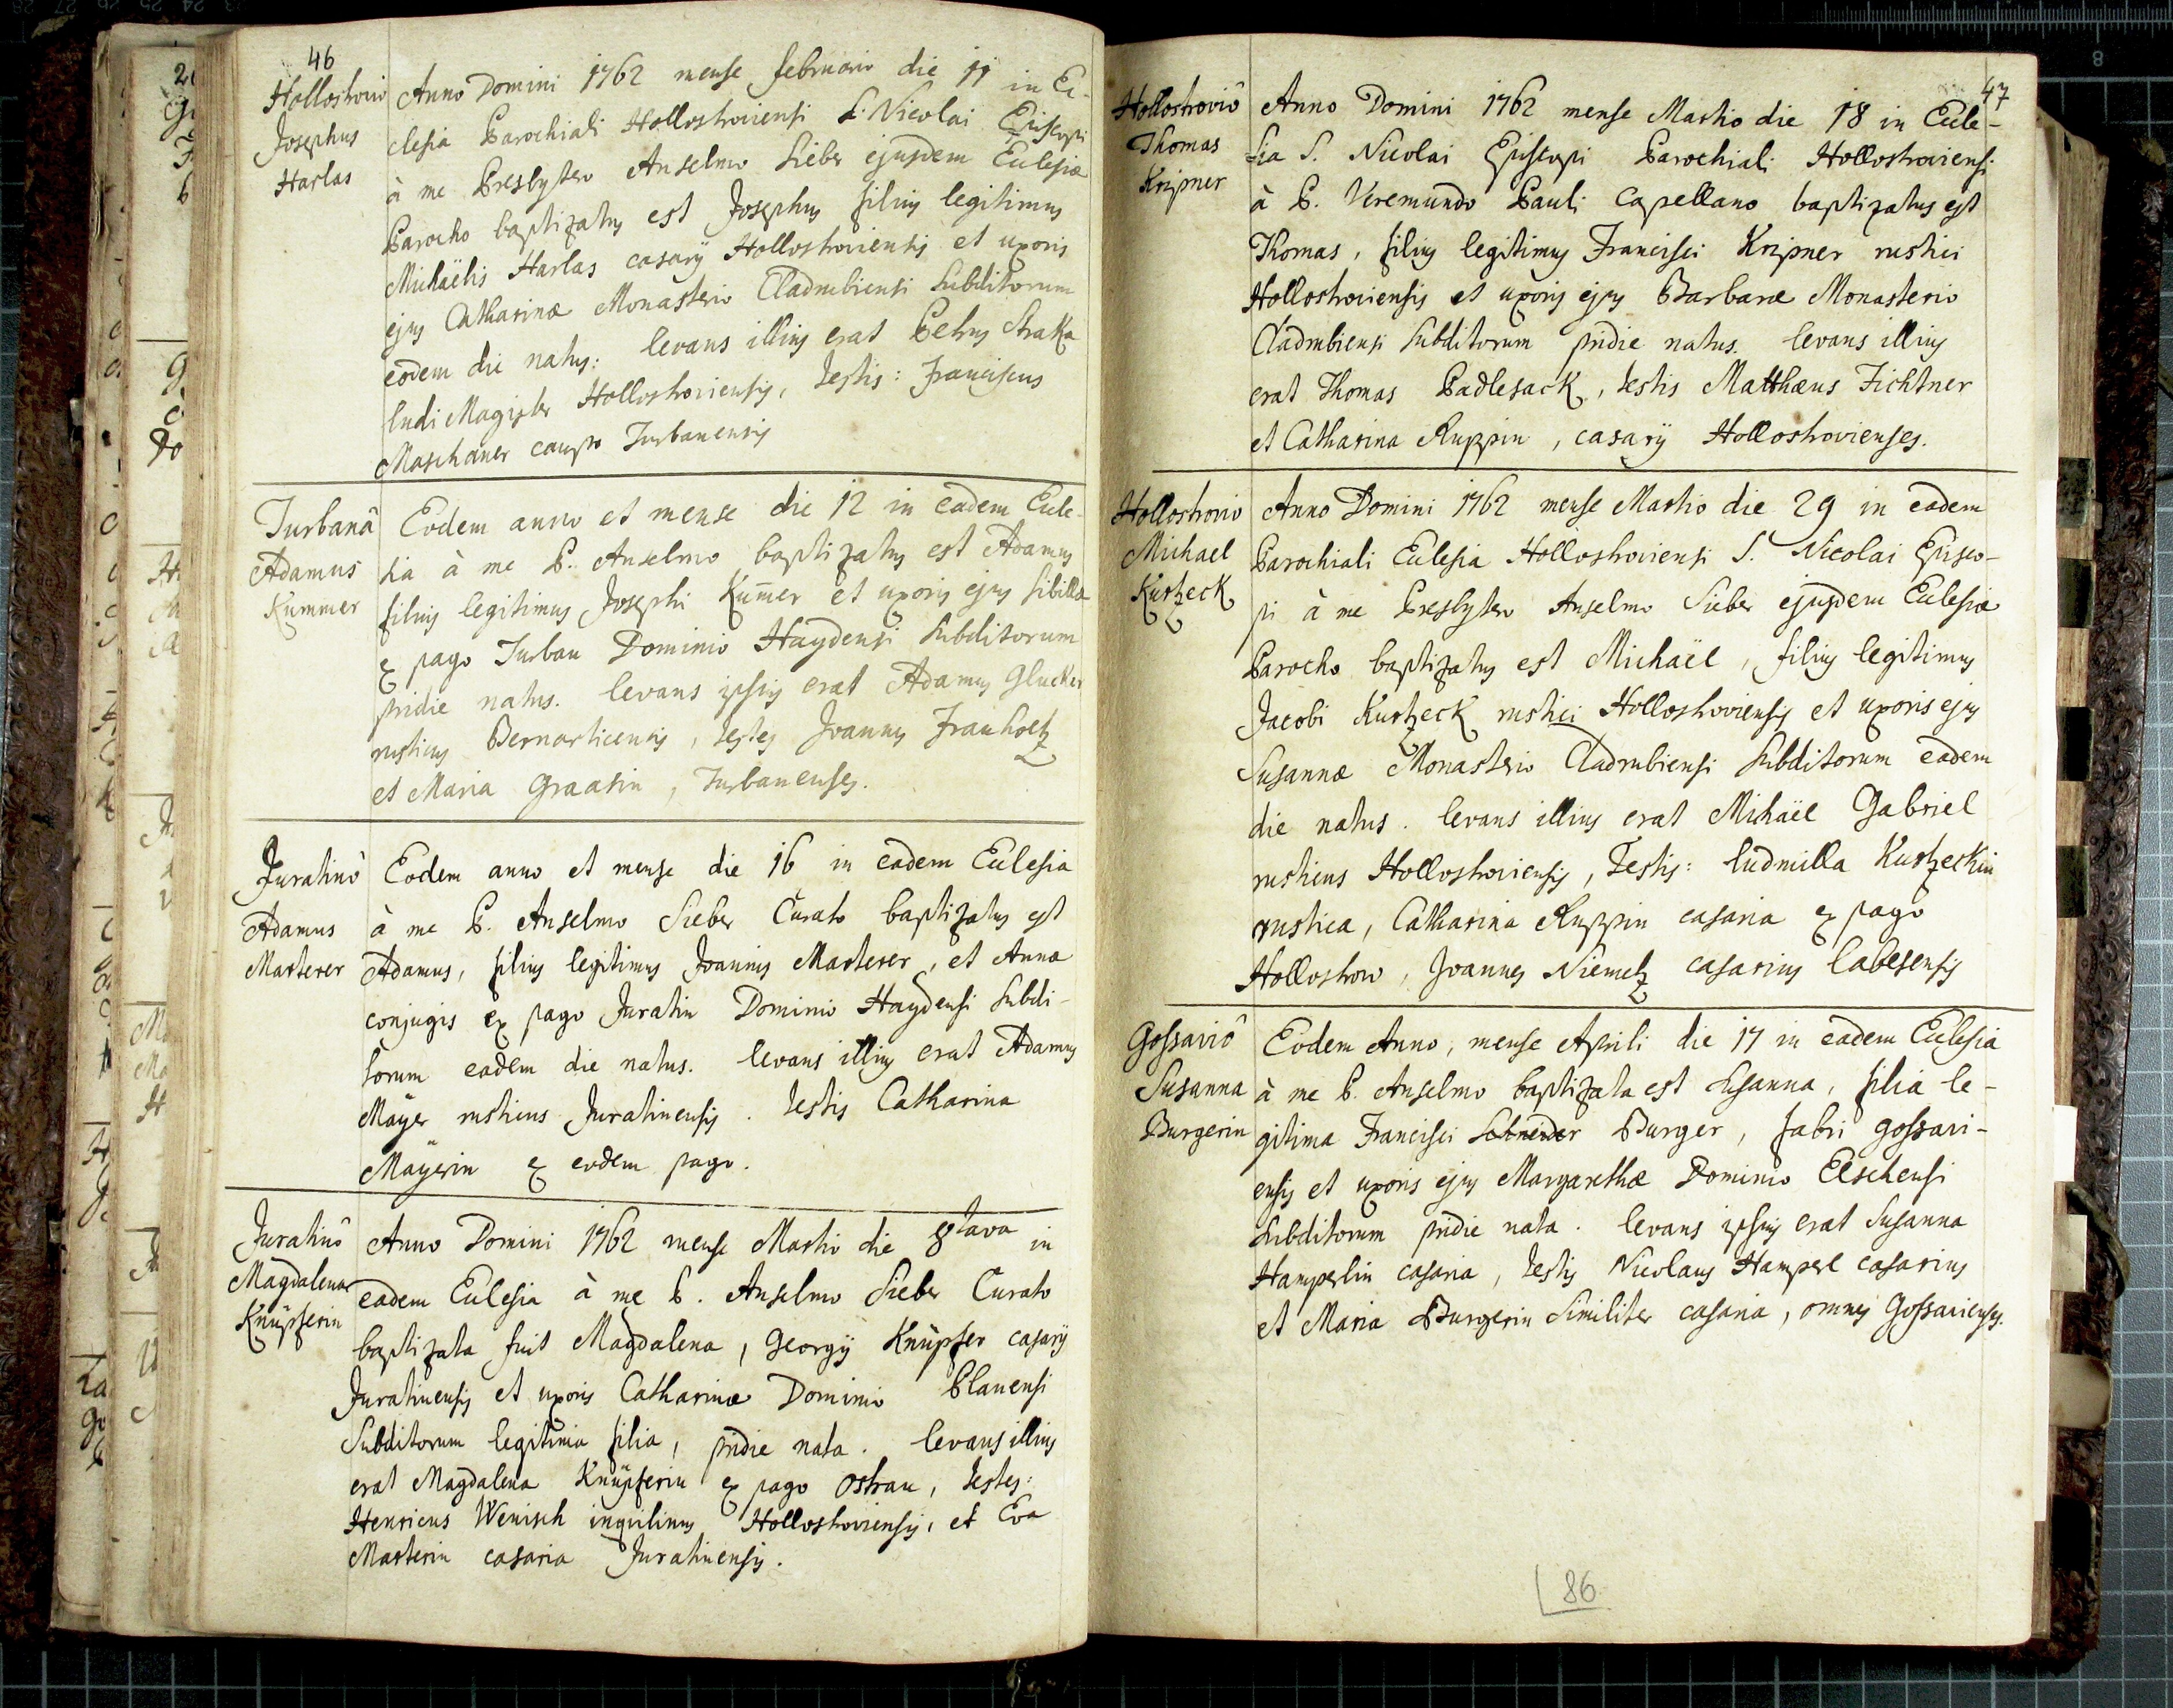 46
Hollostrovio
Josephus
Harlas
Anno Domini 1762 mense februario die 11 in Ec-
clesia Parochiali Hollostroviensi S. Nicolai Episcopi
à me Presbytero Anselmo Sieber ejusdem Ecclesiæ
Parocho baptizatus est Josephus filius legitimus
Michaëlis Harlas casarij Hollostroviensis et uxoris
ejus Catharinæ Monasterio Cladrubiensi subditorum
eodem die natus: levans illius erat Petrus Straka
ludi Magister Hollostroviensis, testis: Franciscus
Maschauer caupo Turbanensis
Turbanâ
Adamus
Kummer
Eodem anno et mense die 12 in eadem Eccle-
sia à me P. Anselmo baptizatus est Adamus
filius legitimus Josephi Kum̄er et uxoris ejus sibillæ
ex pago Turban Dominio Haydensi subditorum
pridie natus. levans ipsius erat Adamus Glucker
rusticus Bernarticensis, testes Joannes Frauholtz
et Maria Graasin, Turbanenses.
Juratinô
Adamus
Marterer
Eodem anno et mense die 16 in eadem Ecclesia
à me P. Anselmo Sieber Curato baptizatus est
Adamus, filius legitimus Joannis Marterer, et Annæ
conjugis ex pago Juratin Dominio Haydensi subdi-
torum eadem die natus. levans illius erat Adamus
Mayer rusticus Juratinensis. testis Catharina
Mayerin ex eodem pago.
Juratinô
Magdalena
Knüpferin
Anno Domini 1762 mense Martio die 8tava in
eadem Ecclesia à me P. Anselmo Sieber Curato
baptizata fuit Magdalena, Georgij Knüpfer casarij
Juratinensis et uxoris Catharinæ Dominio Planensi
Subditorum legitima filia, pridie nata. levans illius
erat Magdalena Knüpferin ex pago Ostrau, testes:
Henricus Wenisch inquilinus Hollostroviensis, et Eva
Marterin casaria Juratinensis.
47
Hollostroviô
Thomas
Kripner
Anno Domini 1762 mense Martio die 18 in Eccle-
sia S. Nicolai Episcopi Parochiali Hollostroviensi
à P. Veremundo Pauli Capellano baptizatus est
Thomas, filius legitimus Francisci Kripner rustici
Hollostroviensis et uxoris ejus Barbaræ Monasterio
Cladrubiensi subditorum pridie natus. levans illius
erat Thomas Padlesack, testis Matthæus Fichtner
et Catharina Ruppin, casarij Hollostrovienses.
Hollostrovio
Michael
Kurtzeck
Anno Domini 1762 mense Martio die 29 in eadem
Parochiali Ecclesia Hollostroviensi S. Nicolai Episco-
pi à me Presbytero Anselmo Sieber ejusdem Ecclesiæ
Parocho baptizatus est Michaël, filius legitimus
Jacobi Kurtzeck rustici Hollostroviensis et uxoris ejus
Susannæ Monasterio Cladrubiensi subditorum eadem
die natus. levans illius erat Michaël Gabriel
rusticus Hollostroviensis, Testis: ludmilla Kurtzeckin
rustica, Catharina Ruppin casaria ex pago
Hollostrow, Joannes Niemetz casarius labesensis
Gossaviô
Susanna
Burgerin
Eodem Anno, mense Aprili die 17 in eadem Ecclesia
à me P. Anselmo baptizata est Susanna, filia le-
gitima Francisci Schneider Burger, fabri gossavi-
ensis et uxoris ejus Margarethæ Dominio Elschensi
subditorum pridie nata. levans ipsius erat Susanna
Hamperlin casaria, testis Nicolaus Hamperl casarius
et Maria Burgerin similiter casaria, omnes Gossavienses.
86